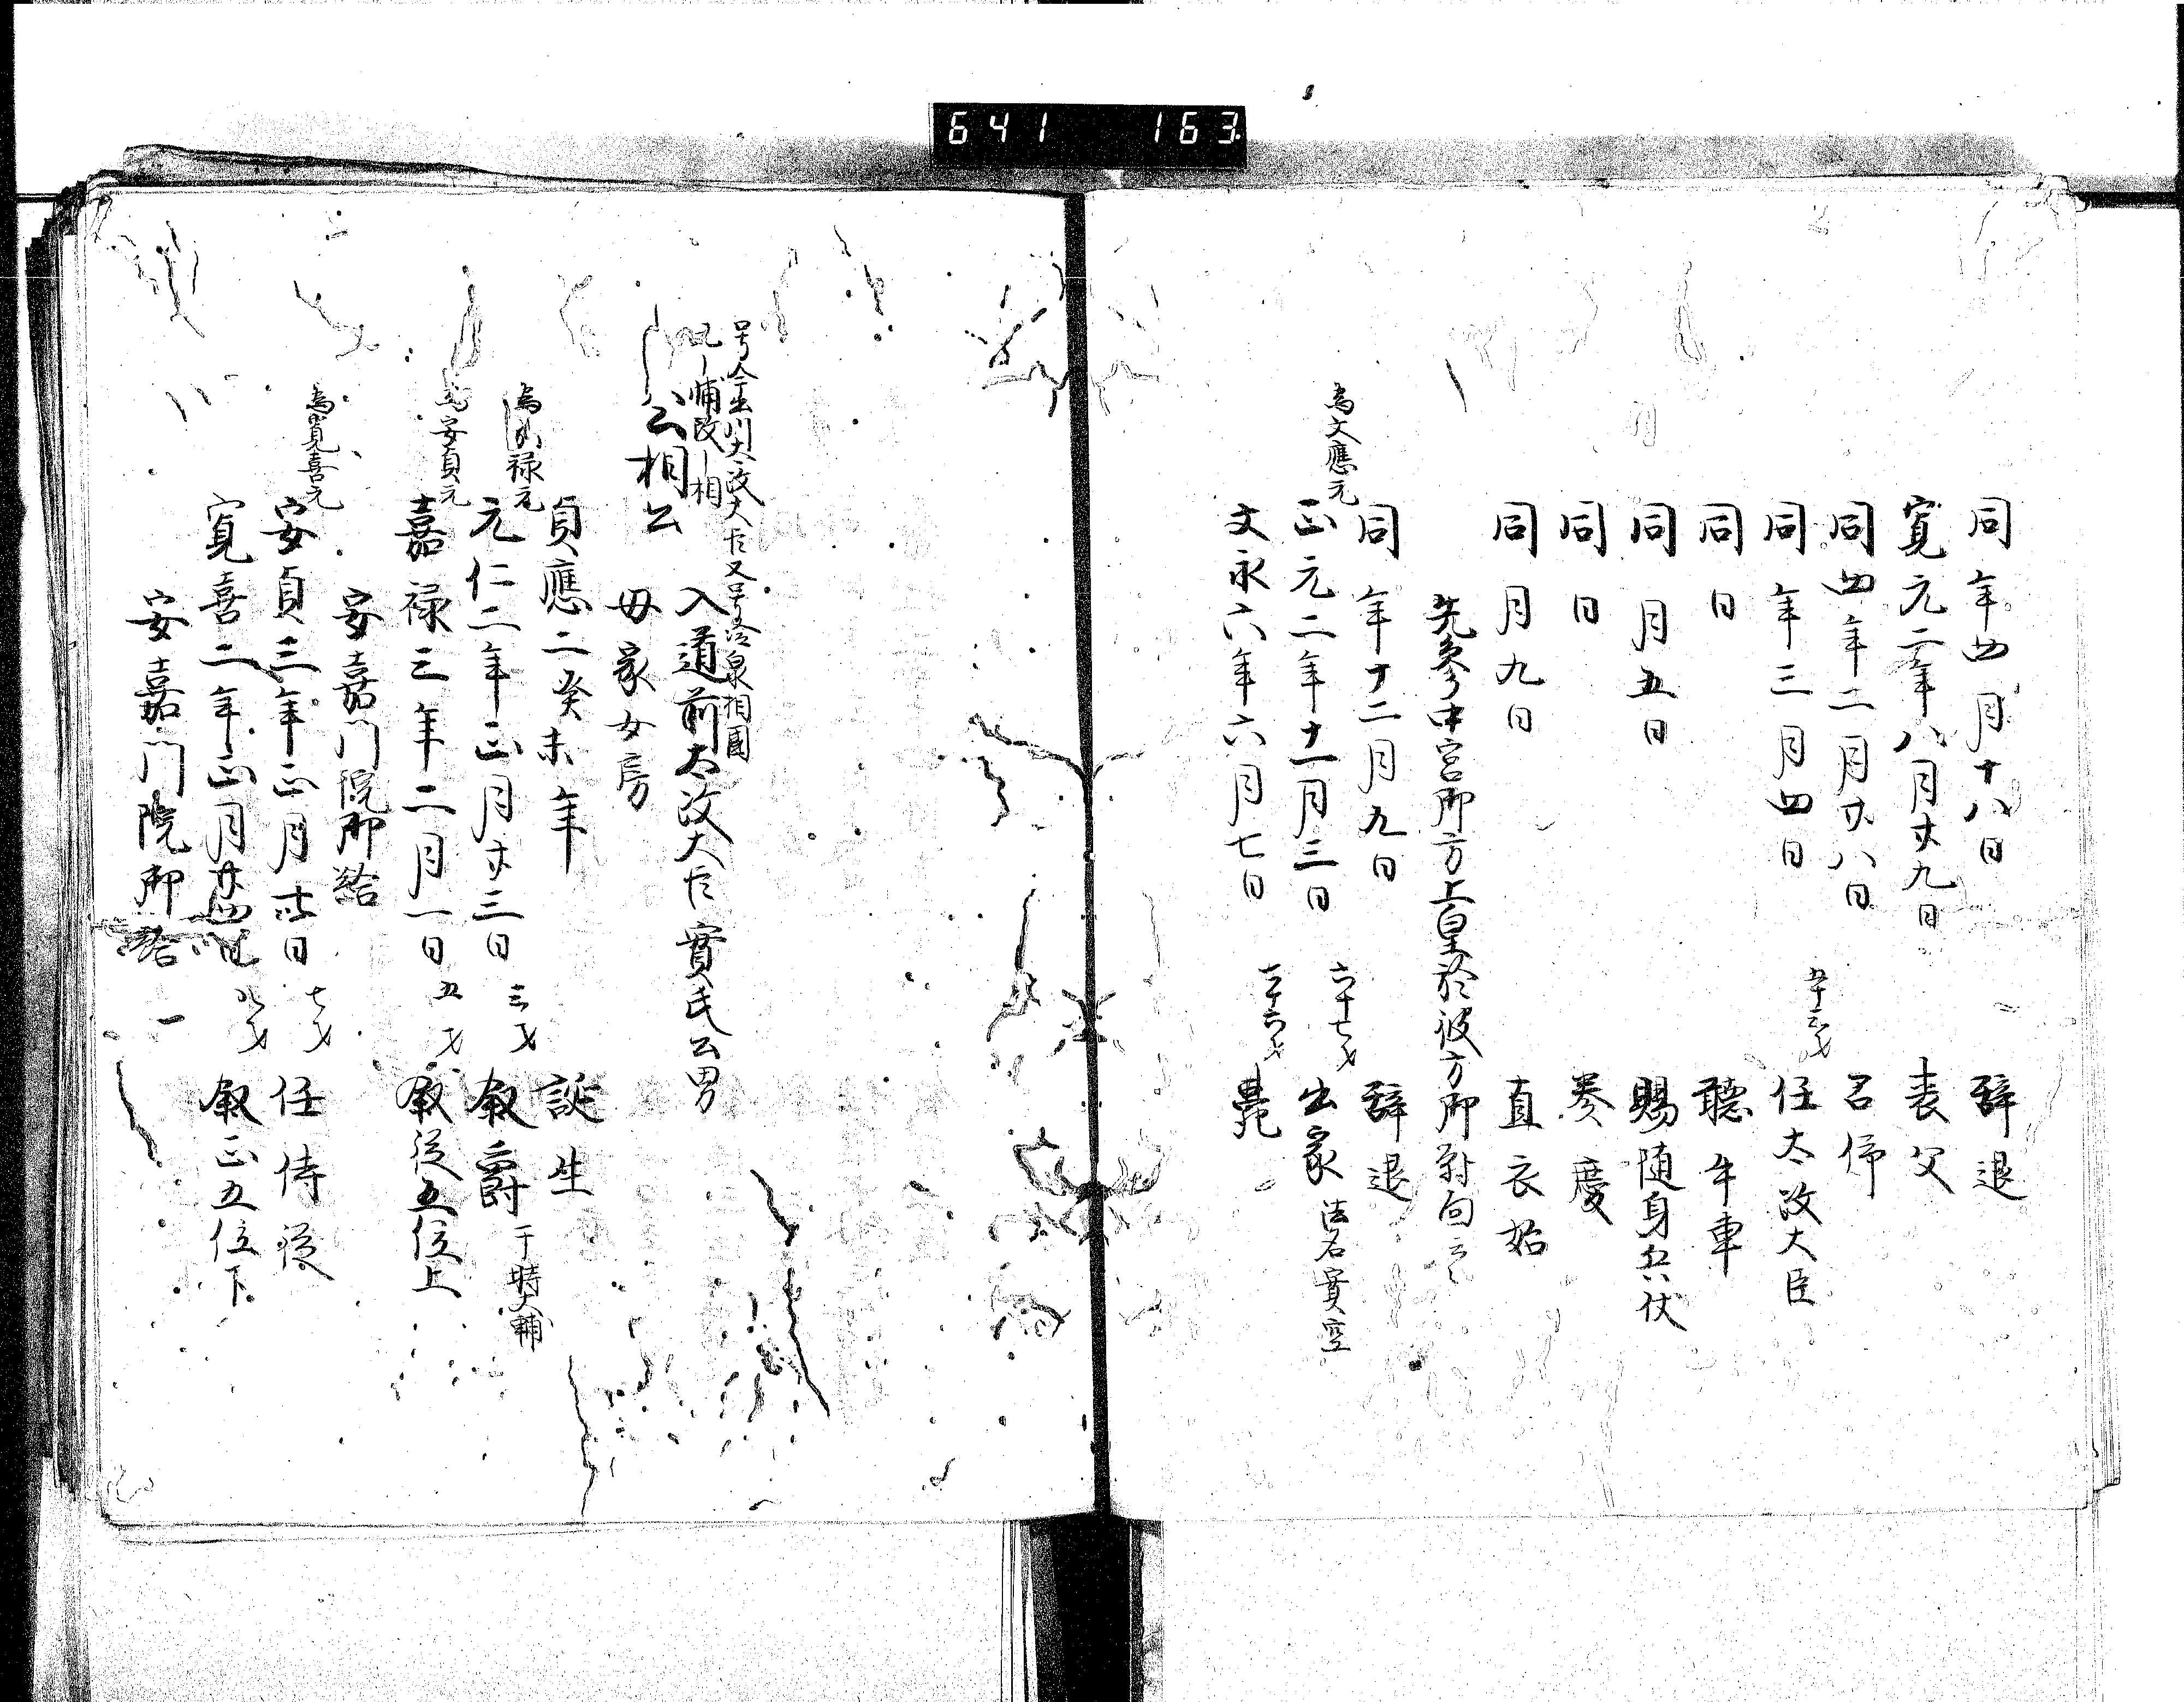 641 163
同年四月十八日 辞退
寛元二年八月廿九日 喪父
同四年二月廿八日 召仰
同年三月四日 五十三才 任太政大臣
同日 聴牛車
同月五日 賜随身兵仗
同日 奏慶
同月九日 直衣始
先参中宮御方上皇於彼方御対向云々
同年十二月九日 辞退
為文應元
正元二年十一月三日 六十七才 出家 法名實空
文永六年六月七日 七十六才 薨
号今出川太政大臣又号冷泉相国
輔改 相
公相公
入道前太政大臣實氏公男
母家女房
貞應二癸未年 誕生
為嘉禄元
元仁二年正月廿三日 三才 叙爵 于時大輔
為安貞元
嘉禄三年二月一日 五才 叙従五位上
安嘉門院御給
為寛喜元
安貞三年正月卅日 七才 任侍従
寛喜二年正月廿四日 八才 叙正五位下
安嘉門院御給